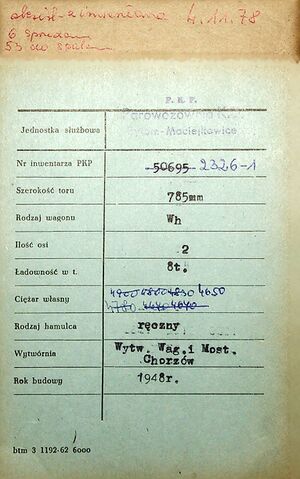 4.11.78
6 sprzedan
53 do spalen
P. K. P.
Parowozownia Kl.
Bytom-Maciejkowice
Jednostka służbowa
Nr inwentarza PKP 50695 2326-1
Szerokość toru 785mm
Rodzaj wagonu Wh
Ilość osi 2
Ładowność w t. 8t.
4900 4800 4830 4650
Ciężar własny 4780 4640 4640
Rodzaj hamulca ręczny
Wytwórnia Wytw. Wag. i Most. Chorzów
Rok budowy 1948r.
btm 3 1192-62 6000